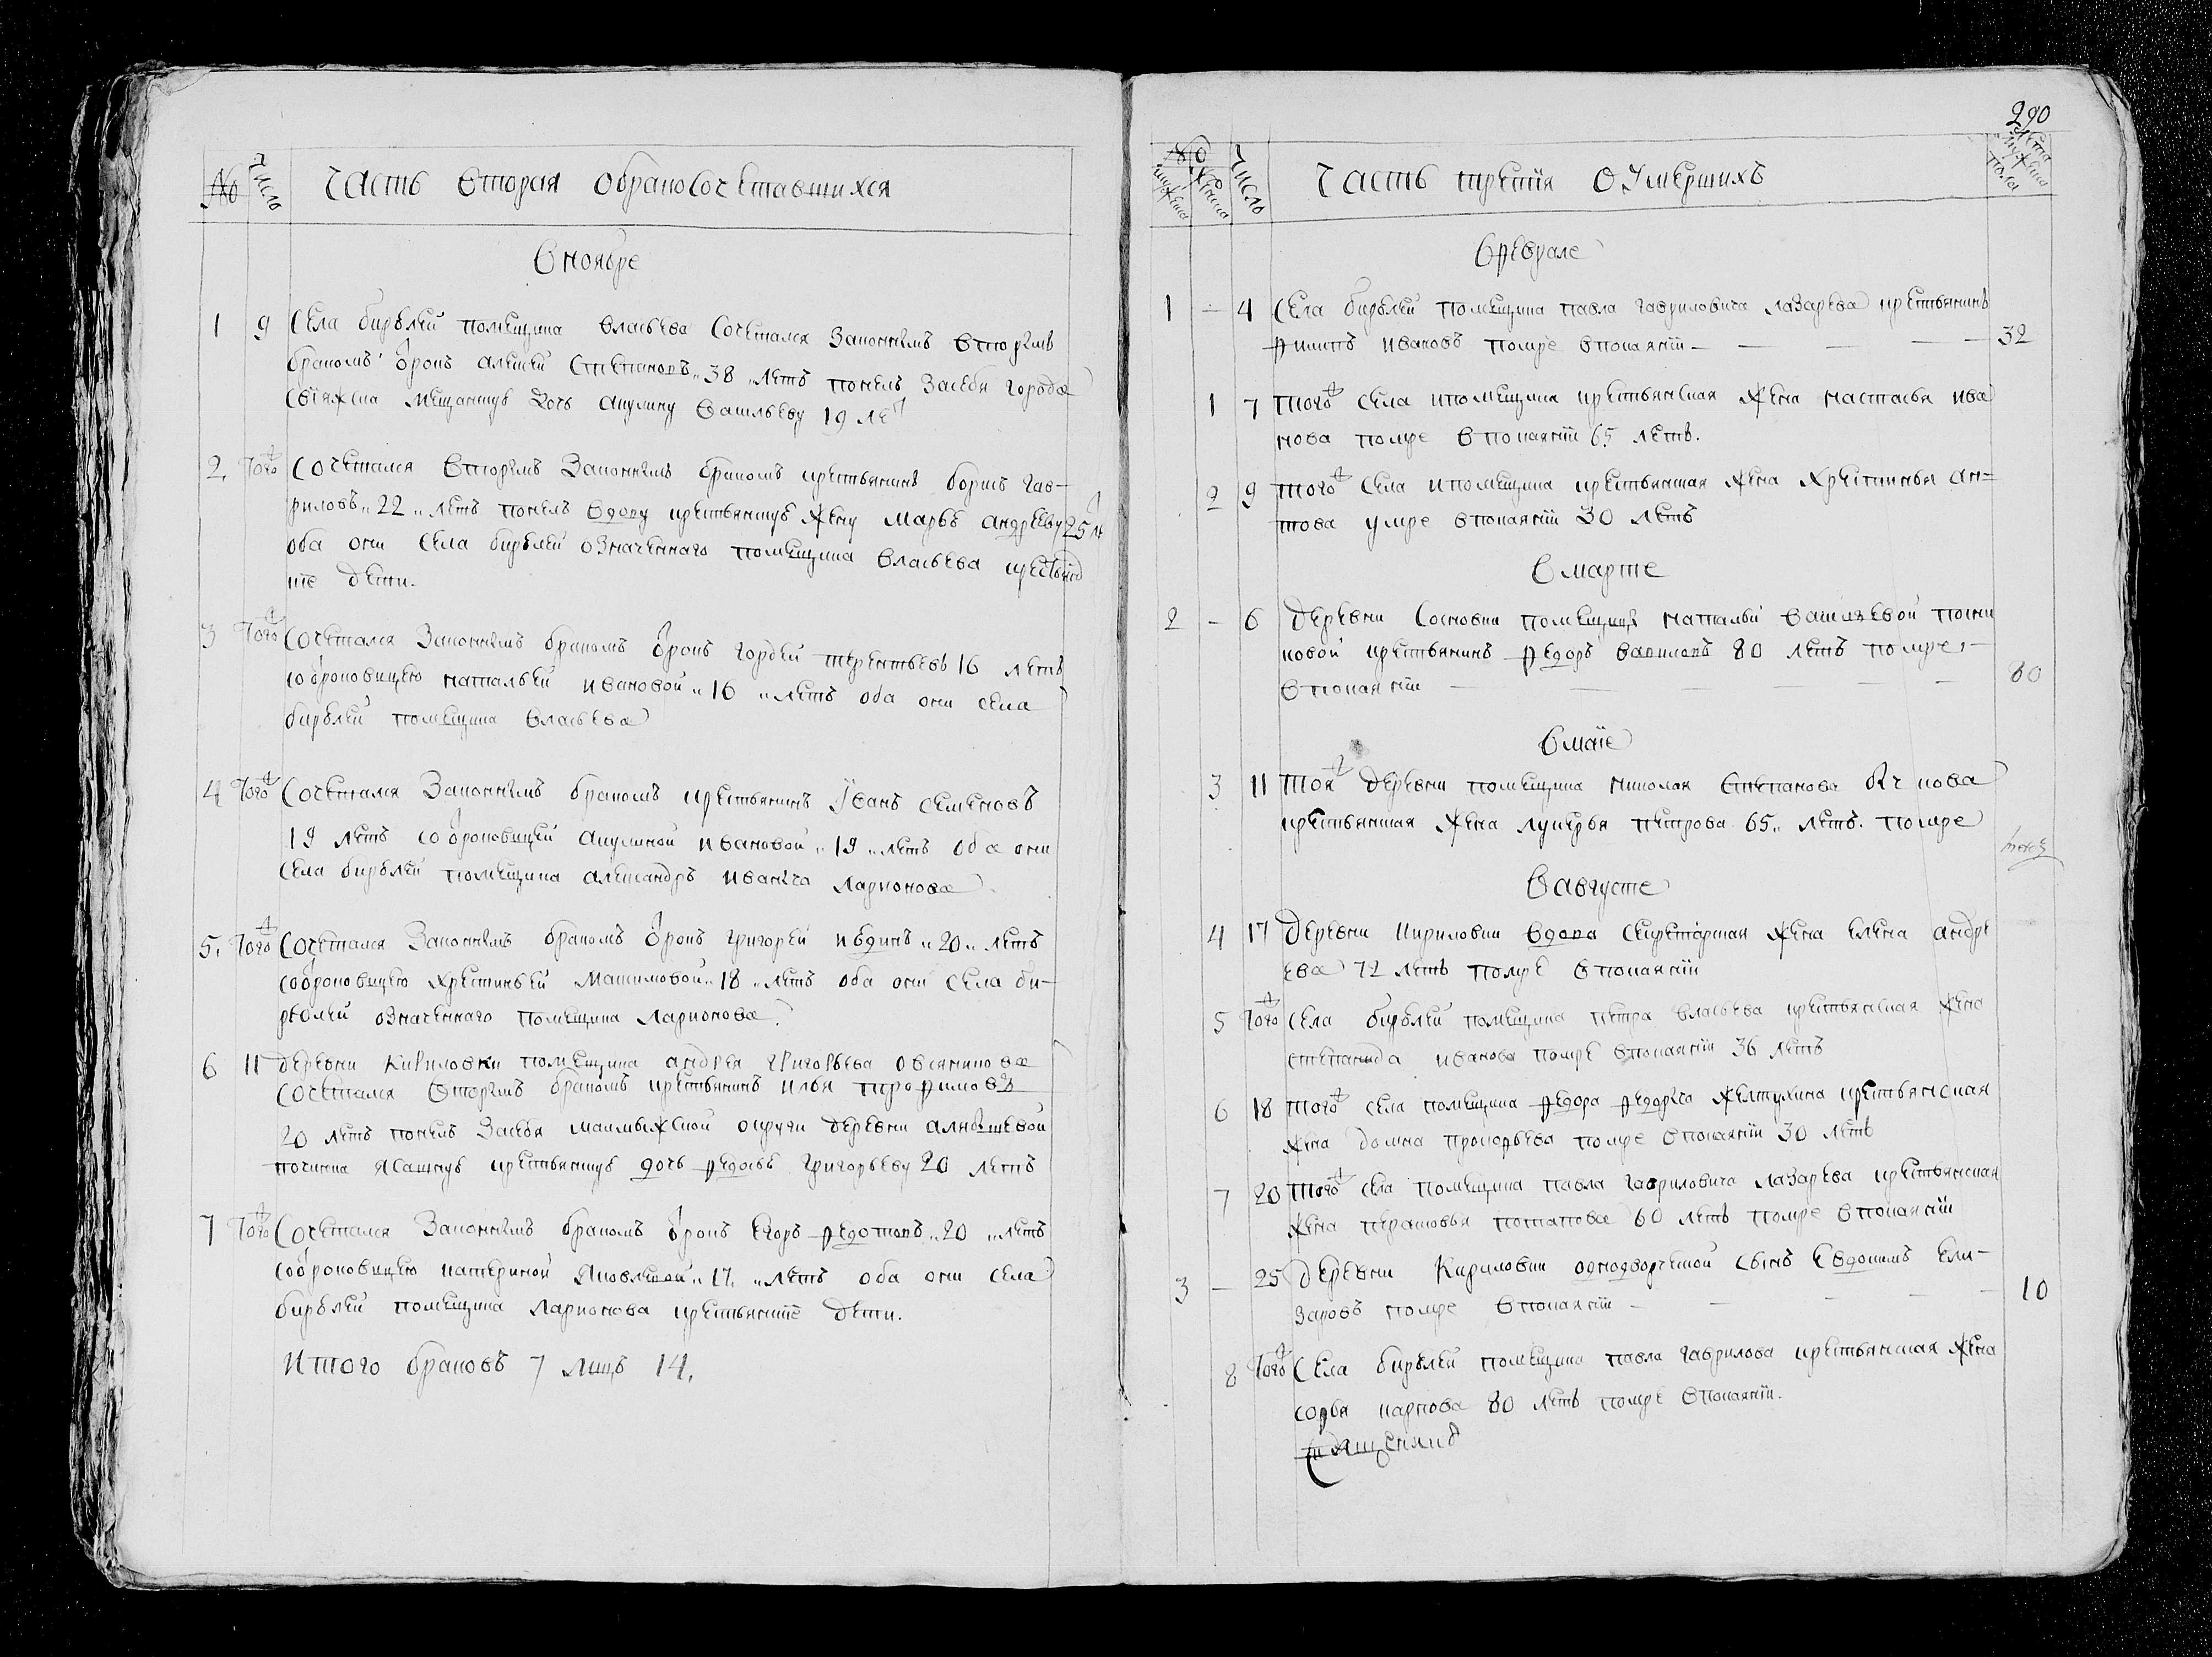 № число Часть вторая обракосочетавшихся
в ноябре
1 9 Села бирълей помещика власьева Сочетался Законнымъ вторымъ
бракомъ отрокъ алексей Степановъ 38 летъ понелъ Засебя города
Свiяжска мещанскуѣ дочь акулину васильеву 19 ле
2. того Сочетался вторымъ Законнымъ бракомъ крестьянинъ борисъ гав-
риловъ 22 летъ понелъ вдову крестьянскуѣ жену марьѣ андрееву 25 ле
оба они Села бирълей означеннаго помещика власьева крестьянс
кiе дети.
3 того Сочетался Законнымъ бракомъ отрокъ гордей терентьевъ 16 летъ
сотроковицею натальей ивановой 16 летъ оба они села
бирълей помещика власьева
4 того Сочетался Законнымъ бракомъ крестьянинъ Iванъ семеновъ
19 летъ сотроковицей акулиной ивановой 19 летъ оба они
Села бирълей помещика александръ иваныча Ларионова
5. того Сочетался Законнымъ бракомъ отрокъ григорей 20 летъ
сотроковицею христиньей Максимовой 18 летъ оба они села би-
рълей означеннаго помещика Ларионова.
6 11 деревни кириловки помещика андрея григорьева овсяникова
сочетался вторымъ бракомъ крестьянинъ илья трофимовъ
20 летъ понелъ Засебя мамыжской округи деревни
починка ясашнуѣ крестьянскуѣ дочь федосьѣ григорьеву 20 летъ
7 того Сочетался Законнымъ бракомъ отрокъ егоръ федотовъ 20 летъ
сотроковицею катериной яковлевой 17. летъ оба они села
бирълей помещика Ларионова крестьянскiе дети.
Итого браковъ 7 лицъ 14.
290
№ мужеска женска число Часть третiя О Умершихъ лета мужеска пола
в феврале
1 - 4 Села бирълей помещика павла гавриловича лазарева крестьянинъ
филипъ ивановъ помре впокаянiи 32
1 7 того села ипомещика крестьянская жена настасья ива
нова помре впокаянiи 65 летъ.
2 9 того села ипомещика крестьянская жена христинья ан-
това умре впокаянiи 30 летъ
в марте
2 - 6 деревни Сосновки помещицы натальи васильевой
новой крестьянинъ федоръ вавиловъ 80 летъ помре
впокаянiи 80
в маiе
3 11 тоя деревни помещика николая степанова
крестьянская жена лукерья петрова 65 летъ. помре
в августе
4 17 деревни Кириловки вдова секретарская жена елена андре
ева 72 летъ помре впокаянiи
5 того села бирълей помещика петра власьева крестьянская жена
степанида иванова помре впокаянiи 36 летъ
6 18 того села помещика федора федорыча желтухина крестьянская
жена домна прокофьева помре впокаянiи 30 летъ
7 20 того села помещика павла гавриловича лазарева крестьянская
жена парасковья потапова 60 летъ помре впокаянiи
3 - 25 деревни Кириловки однодворческой сынъ евдокимъ ели-
заровъ помре впокаянiи 10
8 того Села бирълей помещика павла гаврилова крестьянская жена
софья карпова 80 летъ помре впокаянiи.